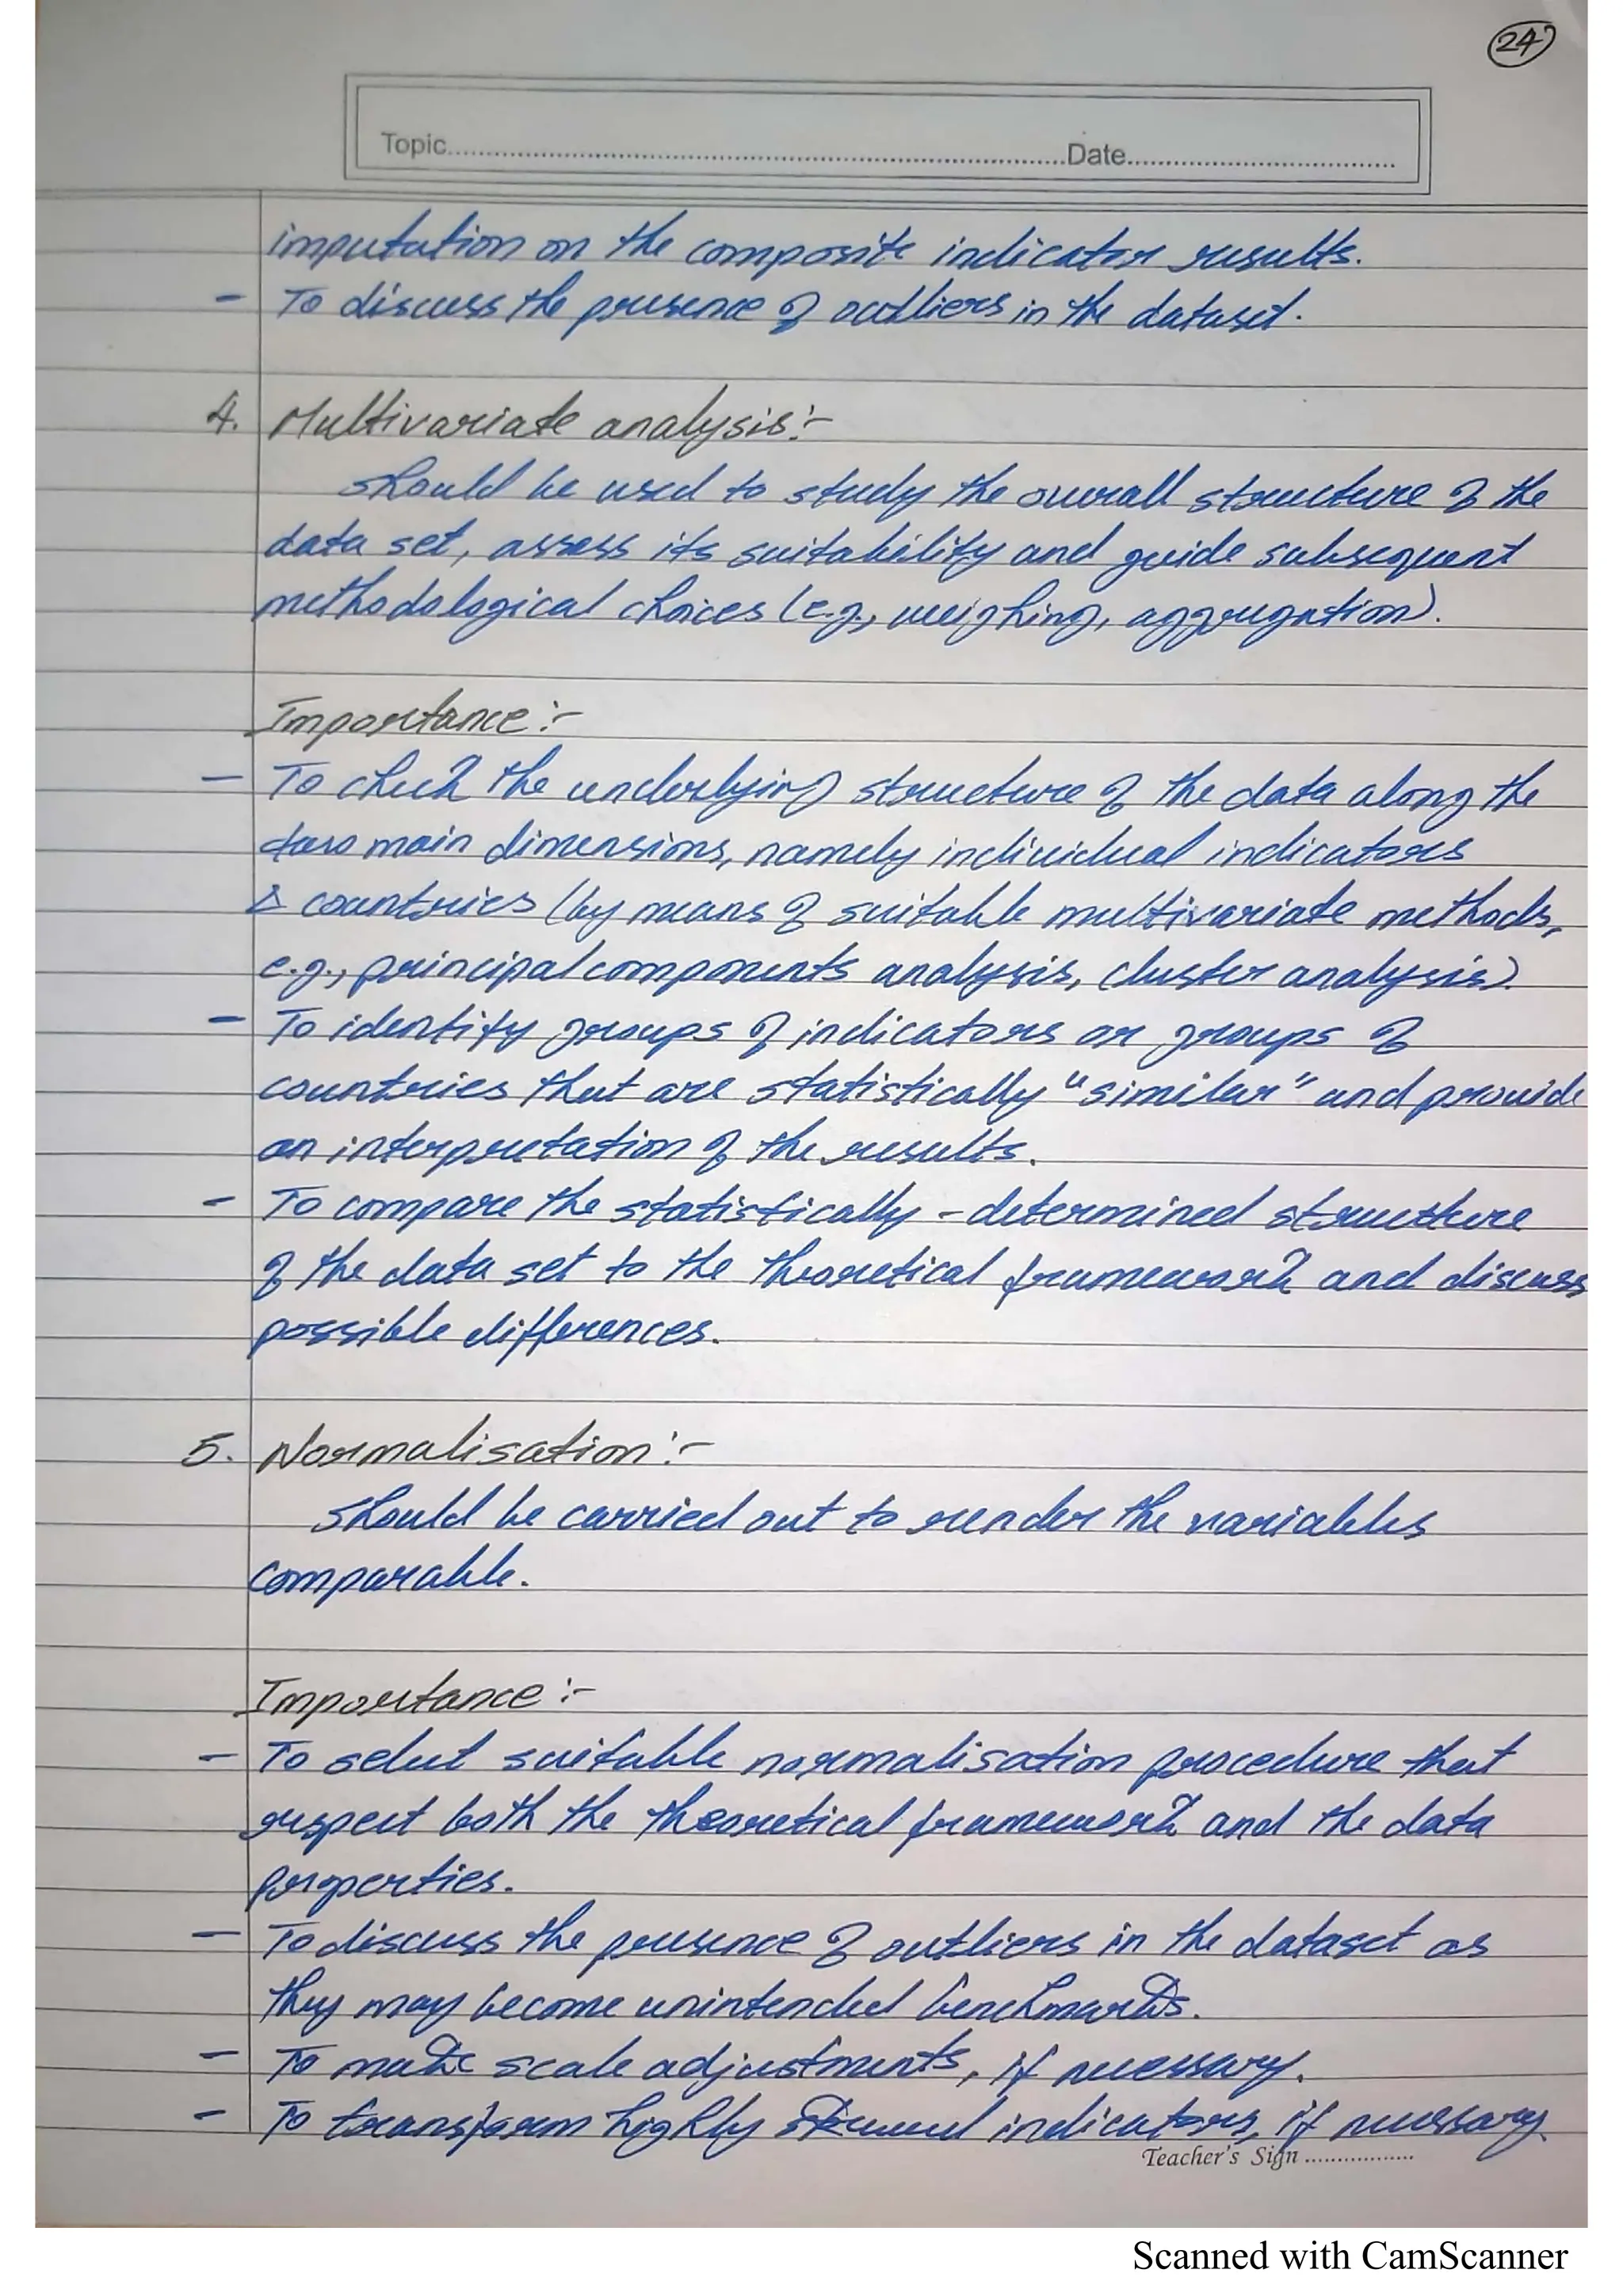 24
Topic..........Date..........
imputation on the composite indicator results.
- To discuss the presence of outliers in the dataset.
4. Multivariate analysis:-
should be used to study the overall structure of the
data set, assess its suitability and guide subsequent
methodological choices (e.g., weighing, aggregation).
Importance:-
- To check the underlying structure of the data along the
two main dimensions, namely individual indicators
& countries (by means of suitable multivariate methods,
e.g., principal components analysis, cluster analysis).
- To identify groups of indicators or groups of
countries that are statistically "similar" and provide
an interpretation of the results.
- To compare the statistically-determined structure
of the data set to the theoretical framework and discuss
possible differences.
5. Normalisation:-
should be carried out to render the variables
comparable.
Importance:-
- To select suitable normalisation procedure that
respect both the theoretical framework and the data
properties.
- To discuss the presence of outliers in the dataset as
they may become unintended benchmarks.
- To make scale adjustments, if necessary.
- To transform highly skewed indicators, if necessary.
Teacher's Sign ..........
Scanned with CamScanner